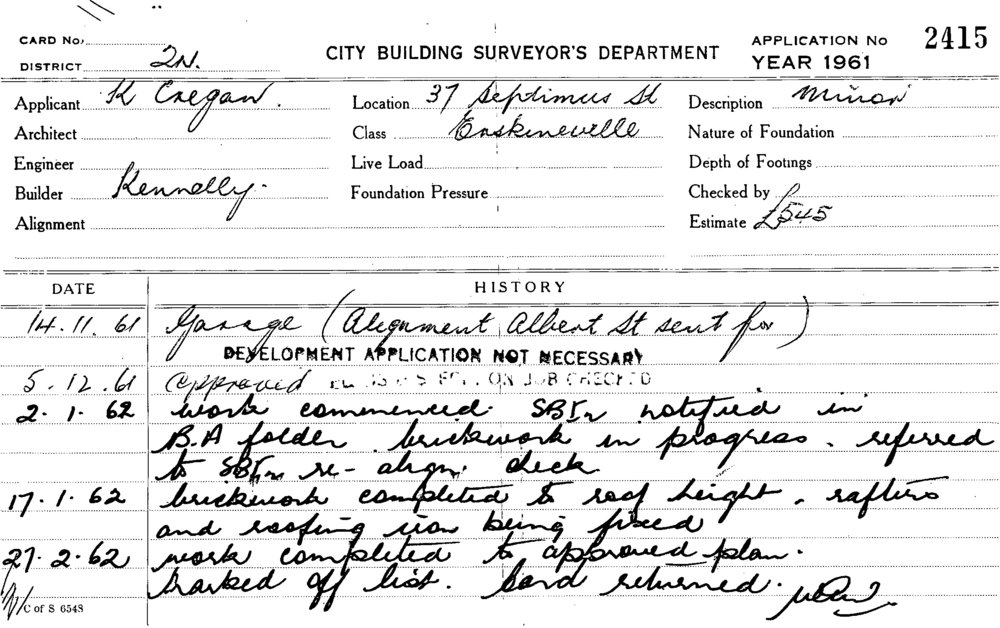 CARD No.
DISTRICT 2N.
CITY BUILDING SURVEYOR'S DEPARTMENT
APPLICATION No 2415
YEAR 1961
Applicant K Cregan. Location 37 Septimus St Description Minor
Architect Class Erskineville Nature of Foundation
Engineer Live Load Depth of Footings
Builder Kennelly. Foundation Pressure Checked by
Alignment Estimate £545
DATE HISTORY
14.11.61 Garage (Alignment Albert St sent for)
DEVELOPMENT APPLICATION NOT NECESSARY
5.12.61 Approved ON JOB CHECKED
2.1.62 work commenced. SBIn notified in
B.A folder. brickwork in progress. referred
to SBIn re-align. check
17.1.62 brickwork completed to roof height. rafters
and roofing iron being fixed
27.2.62 work completed to approved plan.
marked off list. Card returned.
C of S 6548